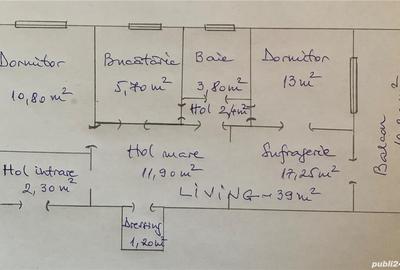 Dormitor
10,80 m²
Bucătărie
5,70 m²
Baie
3,80 m²
Hol 2,4 m²
Dormitor
13 m²
Hol intrare
2,30 m²
Hol mare
11,90 m²
Sufragerie
17,25 m²
LIVING - 39 m²
Dressing
1,20 m²
Balcon
publi24